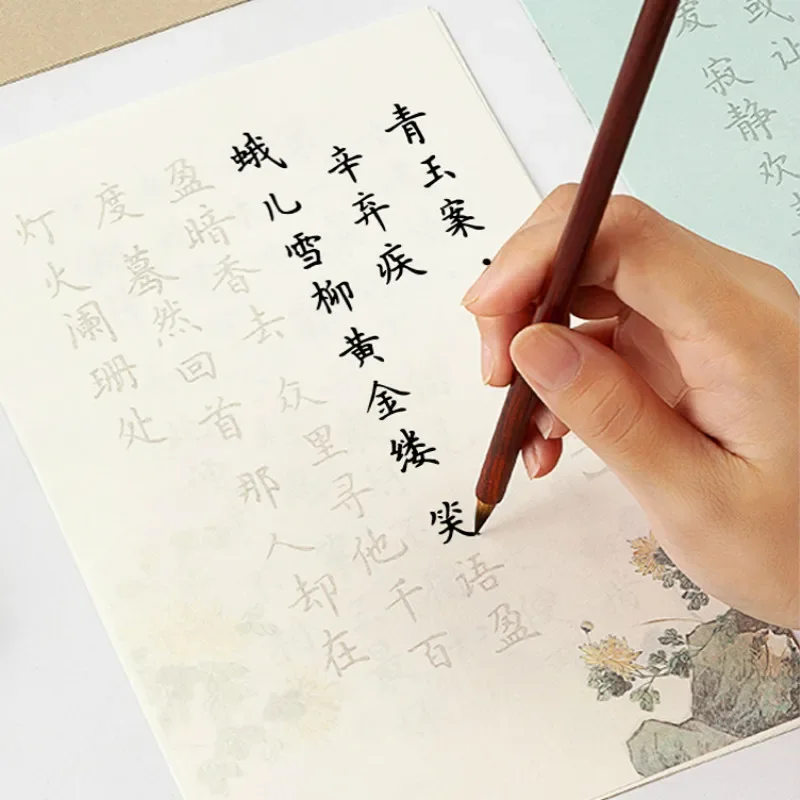 青玉案·
辛弃疾
蛾儿雪柳黄金缕 笑语盈
盈暗香去 众里寻他千百
度 蓦然回首 那人却在
灯火阑珊处
或让
爱 寂静欢